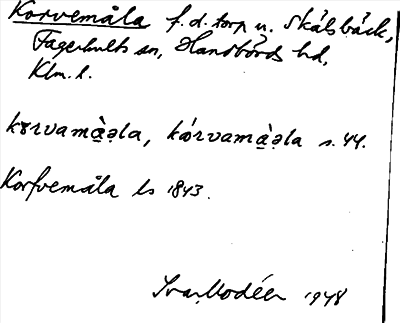 Korvemåla f.d. torp u. Skälsbäck,
Fagerhults sn, Handbörds hd,
Klm. l.
kɤrvamà̱əla, kórvamà̱əla s. 44.
Korfvemåla ls 1843.
Ivar Modéer 1948